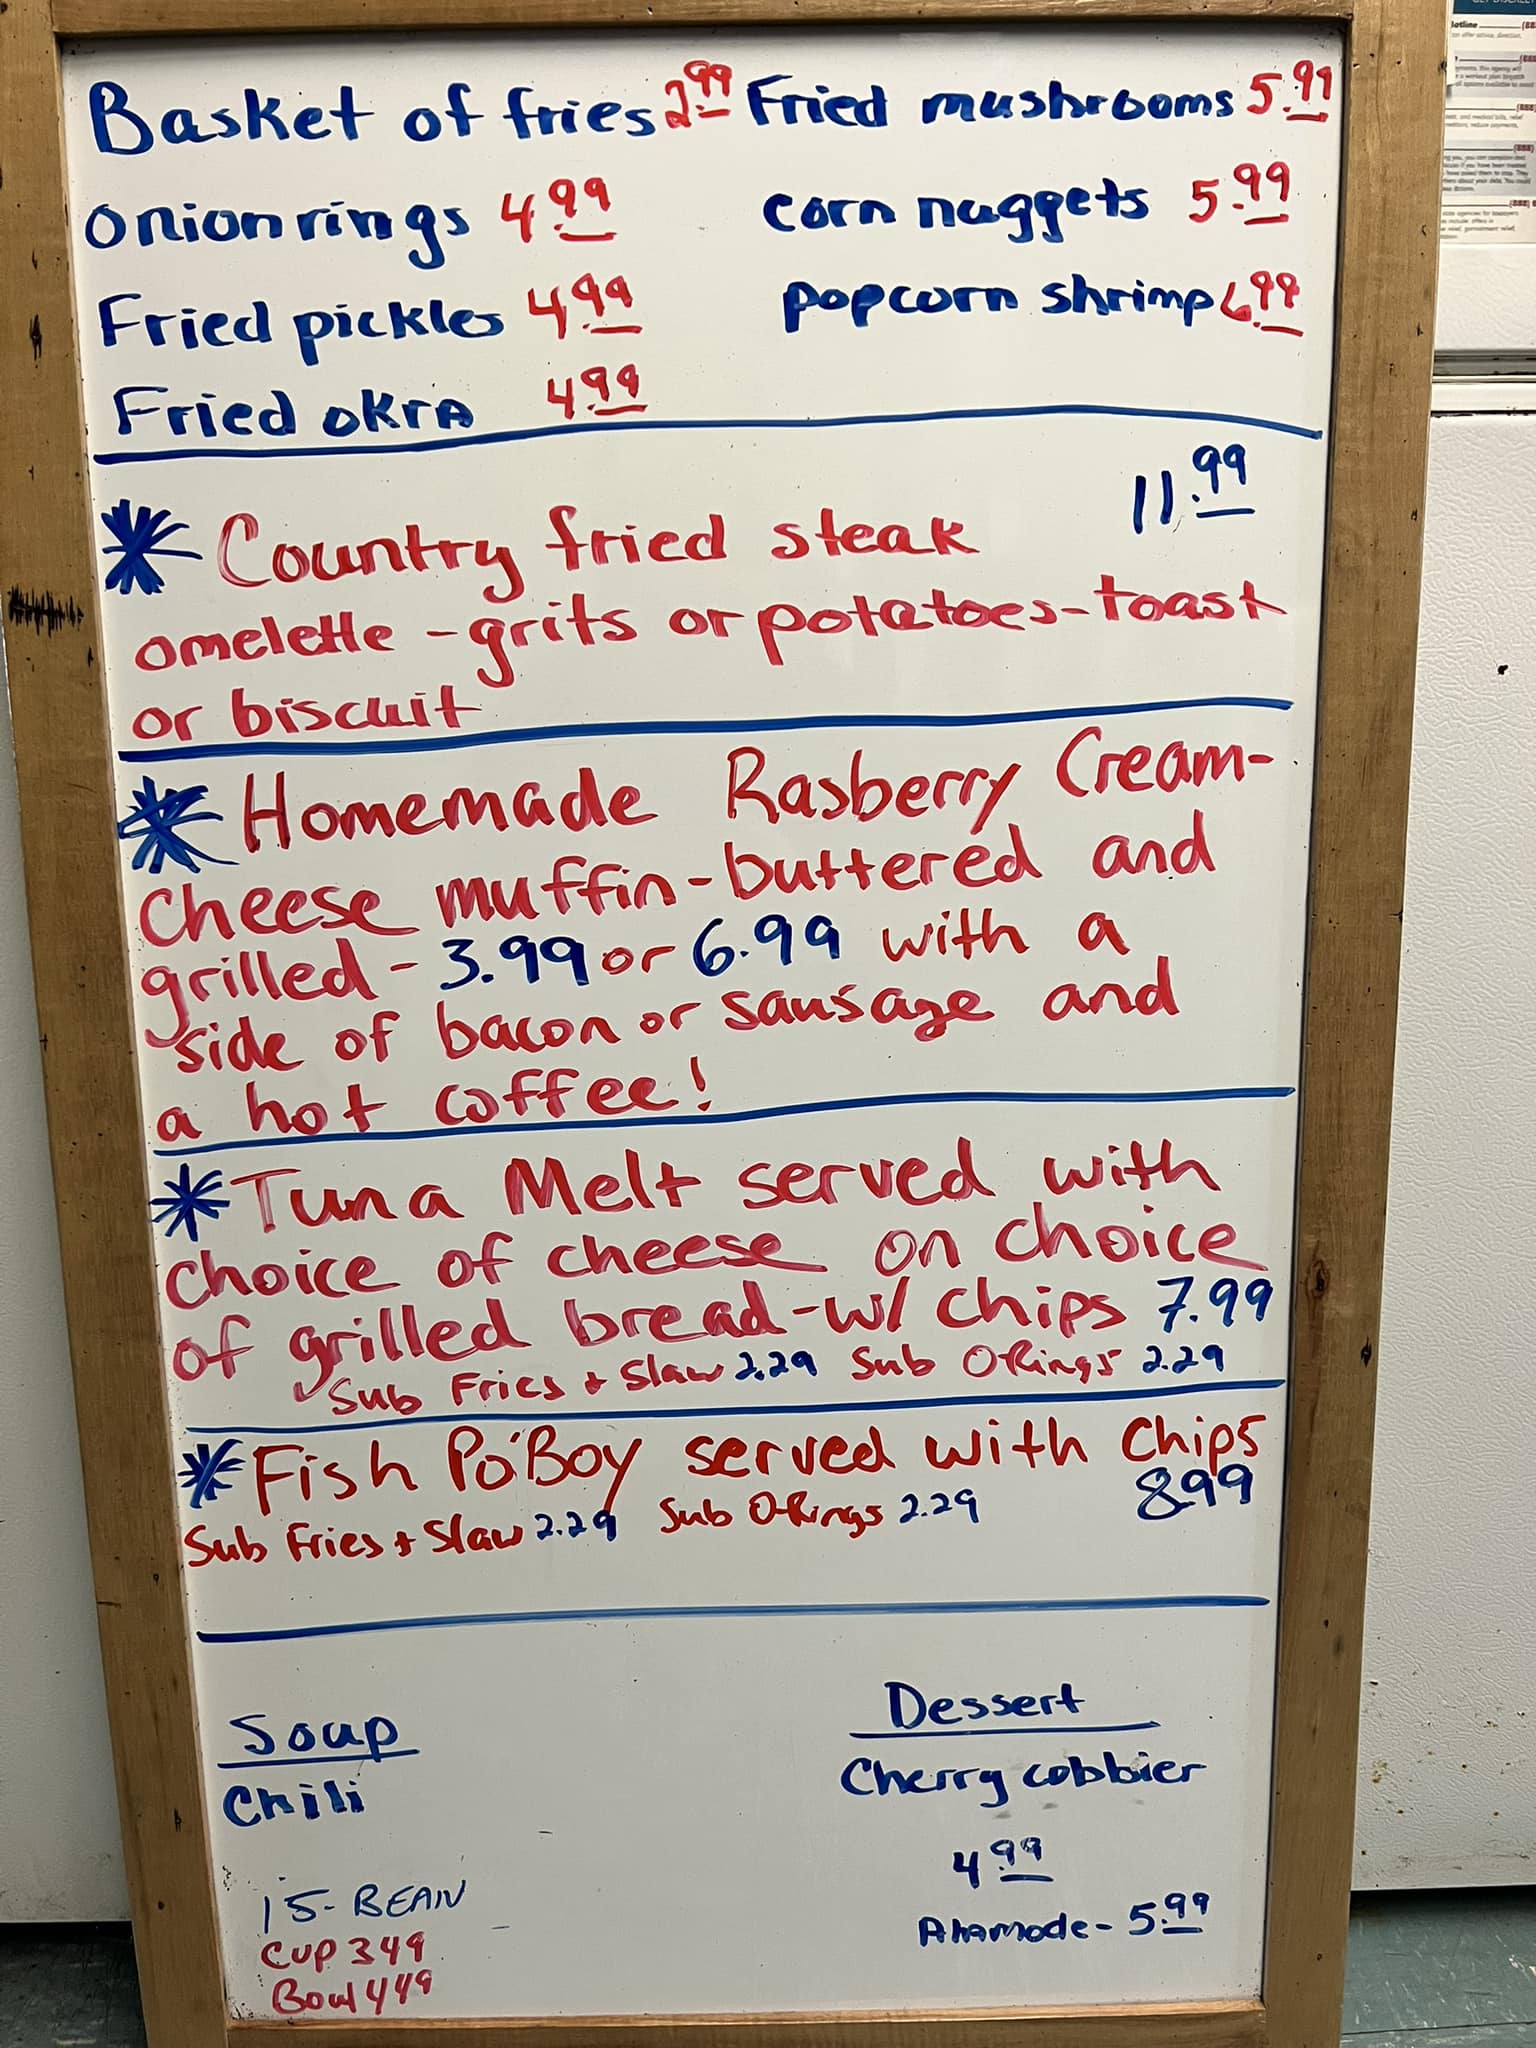 Basket of fries 2.99 Fried mushrooms 5.99
onion rings 4.99 corn nuggets 5.99
Fried pickles 4.99 popcorn shrimp 6.99
Fried okra 4.99
* Country fried steak 11.99
omelette - grits or potatoes - toast
or biscuit
* Homemade Rasberry Cream-
cheese muffin - buttered and
grilled - 3.99 or 6.99 with a
side of bacon or sausage and
a hot coffee!
* Tuna Melt served with
choice of cheese on choice
of grilled bread - w/ chips 7.99
Sub Fries + Slaw 2.29 Sub O-Rings 2.29
* Fish Po'Boy served with chips
8.99
Sub Fries + Slaw 2.29 Sub O-Rings 2.29
Soup
Chili
15-BEAN
Cup 349
Bowl 449
Dessert
Cherry cobbier
4.99
Alamode - 5.99